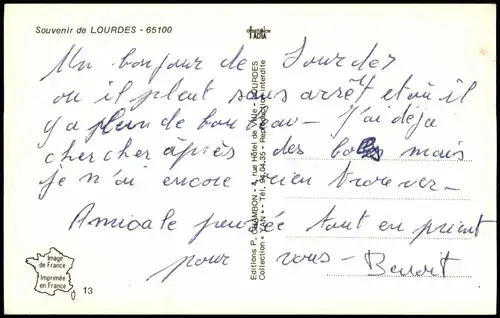 Souvenir de LOURDES - 65100
Un bonjour de Lourdes
ou il pleut sans arrêt et où il
y a plein de bonbeau - J'ai déjà
chercher après des bobs mais
je n'ai encore rien trouver -
Amicale pensée tout en priant
pour vous - Benoit
Editions P. CHAMBON - 4, rue Hôtel de Ville - LOURDES
Collection « YAN » - Tél. 94.04.35 - Reproduction interdite
Image
de France
Imprimée
en France
13